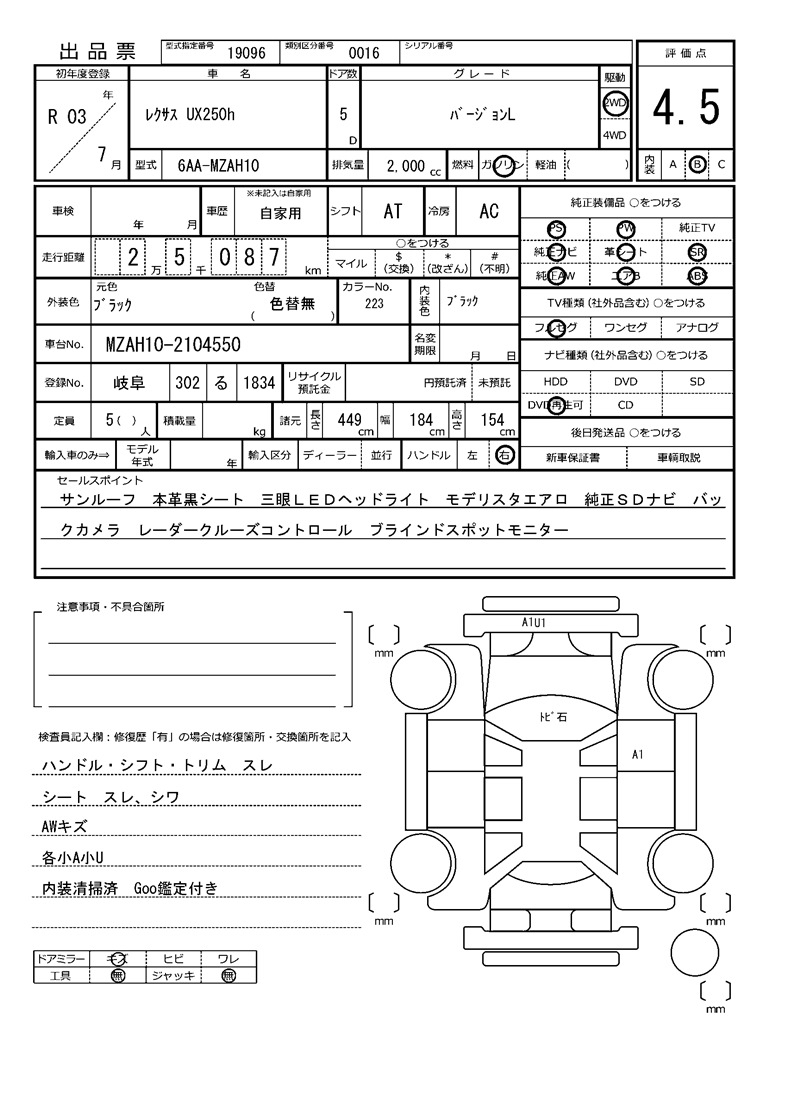 出品票 型式指定番号 19096 類別区分番号 0016 シリアル番号
評価点
4.5
内装 A B C
初年度登録 車名 ドア数 グレード 駆動
R 03 年 7 月 レクサス UX250h 5 D バージョンL 2WD
4WD
型式 6AA-MZAH10 排気量 2,000 cc 燃料 ガソリン 軽油 ( )
車検 年 月 車歴 ※未記入は自家用 自家用 シフト AT 冷房 AC
走行距離 2 万 5 千 0 8 7 km ○をつける
マイル $ (交換) * (改ざん) # (不明)
外装色 元色 ブラック 色替 色替無 ( ) カラーNo. 223 内装色 ブラック
車台No. MZAH10-2104550 名変期限 月 日
登録No. 岐阜 302 る 1834 リサイクル預託金 円預託済 未預託
定員 5 ( ) 人 積載量 kg 諸元 長さ 449 cm 幅 184 cm 高さ 154 cm
輸入車のみ⇒ モデル年式 年 輸入区分 ディーラー 並行 ハンドル 左 右
純正装備品 ○をつける
PS PW 純正TV
純正ナビ 革シート SR
純正AW エアB ABS
TV種類(社外品含む)○をつける
フルセグ ワンセグ アナログ
ナビ種類(社外品含む)○をつける
HDD DVD SD
DVD再生可 CD
後日発送品 ○をつける
新車保証書 車輌取説
セールスポイント
サンルーフ 本革黒シート 三眼LEDヘッドライト モデリスタエアロ 純正SDナビ バッ
クカメラ レーダークルーズコントロール ブラインドスポットモニター
注意事項・不具合箇所
検査員記入欄:修復歴「有」の場合は修復箇所・交換箇所を記入
ハンドル・シフト・トリム スレ
シート スレ、シワ
AWキズ
各小A小U
内装清掃済 Goo鑑定付き
ドアミラー キズ ヒビ ワレ
工具 無 ジャッキ 無
A1U1
mm
mm
トビ石
A1
mm
mm
mm